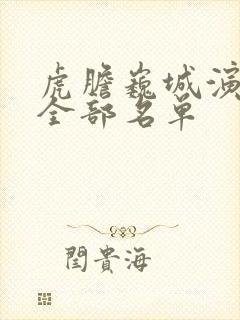 虎膽巍城演
全部名单
閆貴海